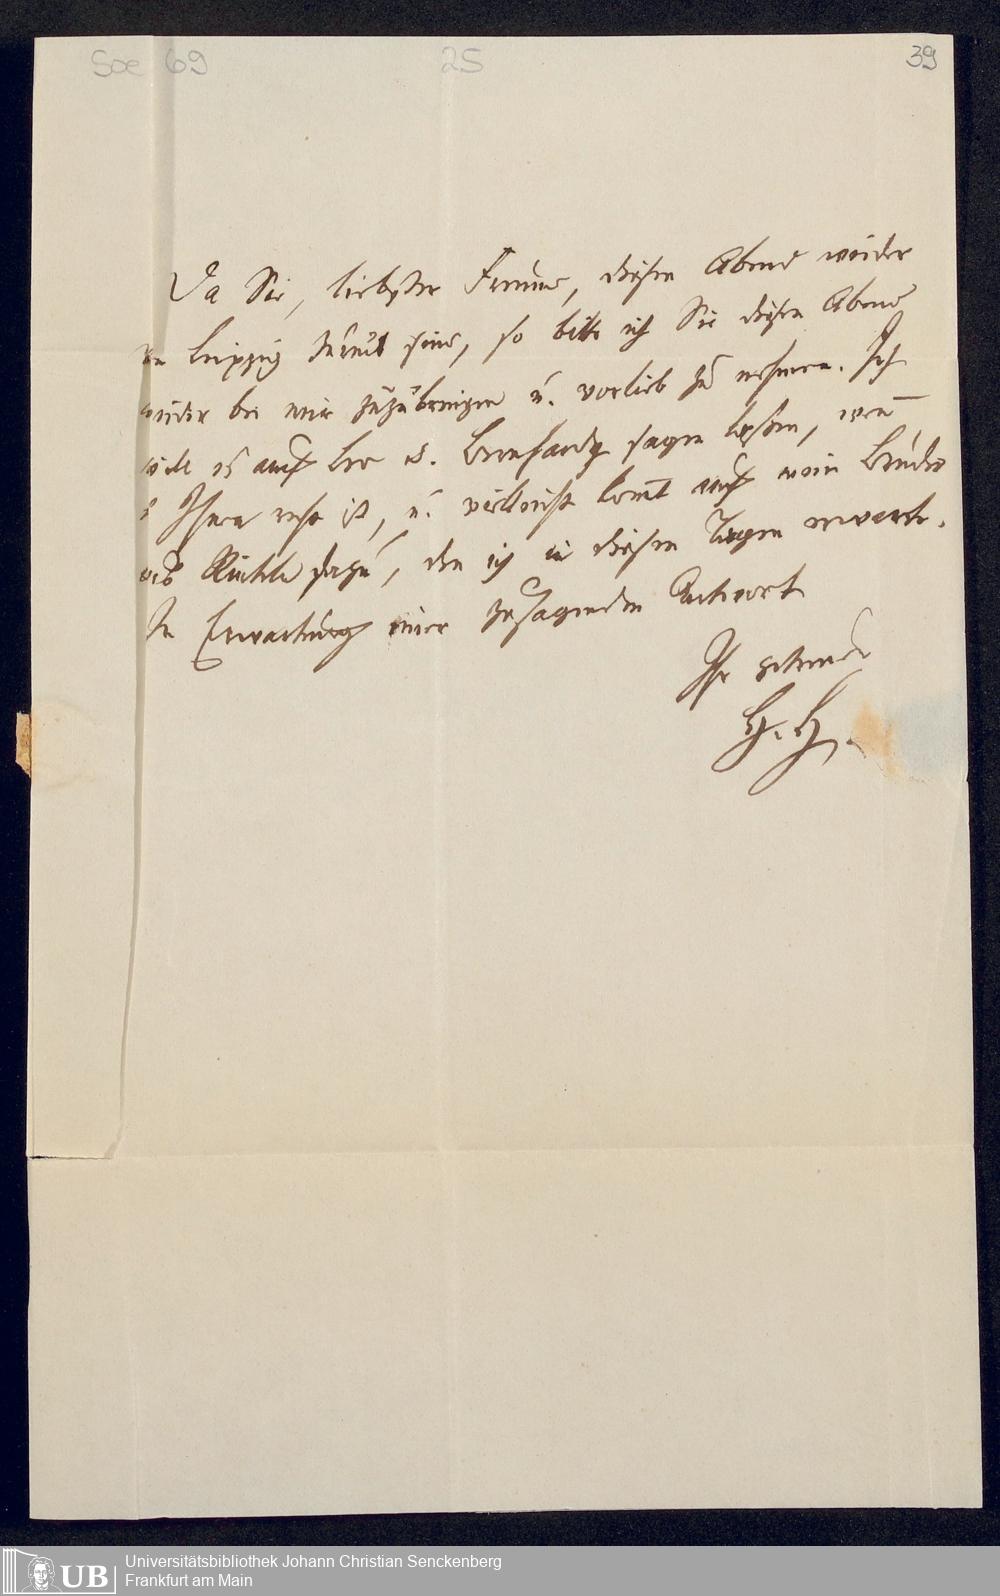 Soe 69 25 39
Da Sie, liebster Freund, diesen Abend wieder
in Leipzig sind, so bitte ich Sie diesen Abend
wieder bei mir zuzubringen u. vorlieb zu nehmen. Ich
will es auch Bernhardy sagen lassen, wenn
Ihnen recht ist, u. vielleicht kommt auch mein Bruder
aus dazu, den ich in diesen Tagen erwarte.
In Erwartung einer zusagenden Antwort
Ihr
H. H.
UB
Universitätsbibliothek Johann Christian Senckenberg
Frankfurt am Main